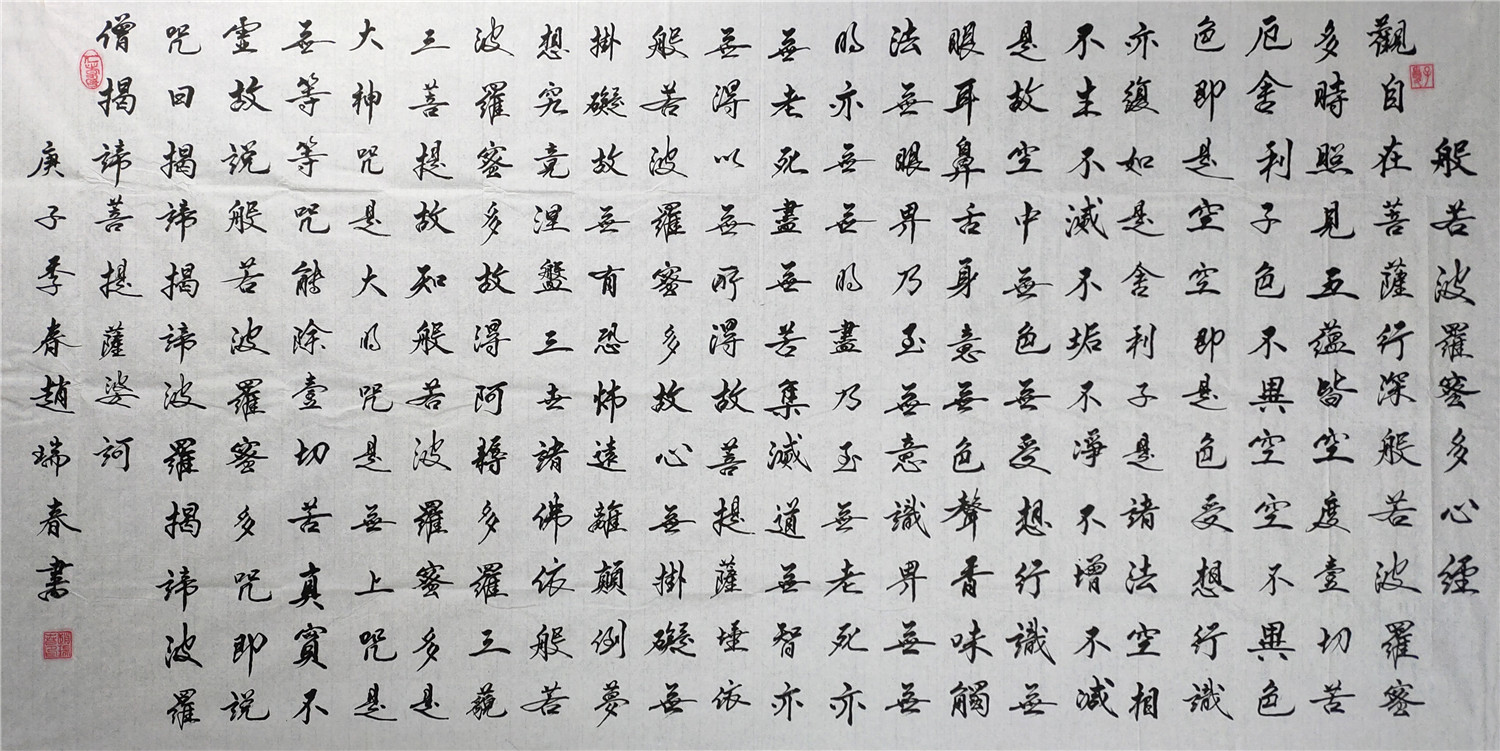 般若波羅蜜多心經
觀自在菩薩行深般若波羅蜜
多時照見五蘊皆空度壹切苦
厄舍利子色不異空空不異色
色即是空空即是色受想行識
亦復如是舍利子是諸法空相
不生不滅不垢不淨不增不減
是故空中無色無受想行識無
眼耳鼻舌身意無色聲香味觸
法無眼界乃至無意識界無無
明亦無無明盡乃至無老死亦
無老死盡無苦集滅道無智亦
無得以無所得故菩提薩埵依
般若波羅蜜多故心無掛礙無
掛礙故無有恐怖遠離顛倒夢
想究竟涅盤三世諸佛依般若
波羅蜜多故得阿耨多羅三藐
三菩提故知般若波羅蜜多是
大神咒是大明咒是無上咒是
無等等咒能除壹切苦真實不
虛故說般若波羅蜜多咒即說
咒曰揭諦揭諦波羅揭諦波羅
僧揭諦菩提薩婆訶
庚子季春趙瑞春書